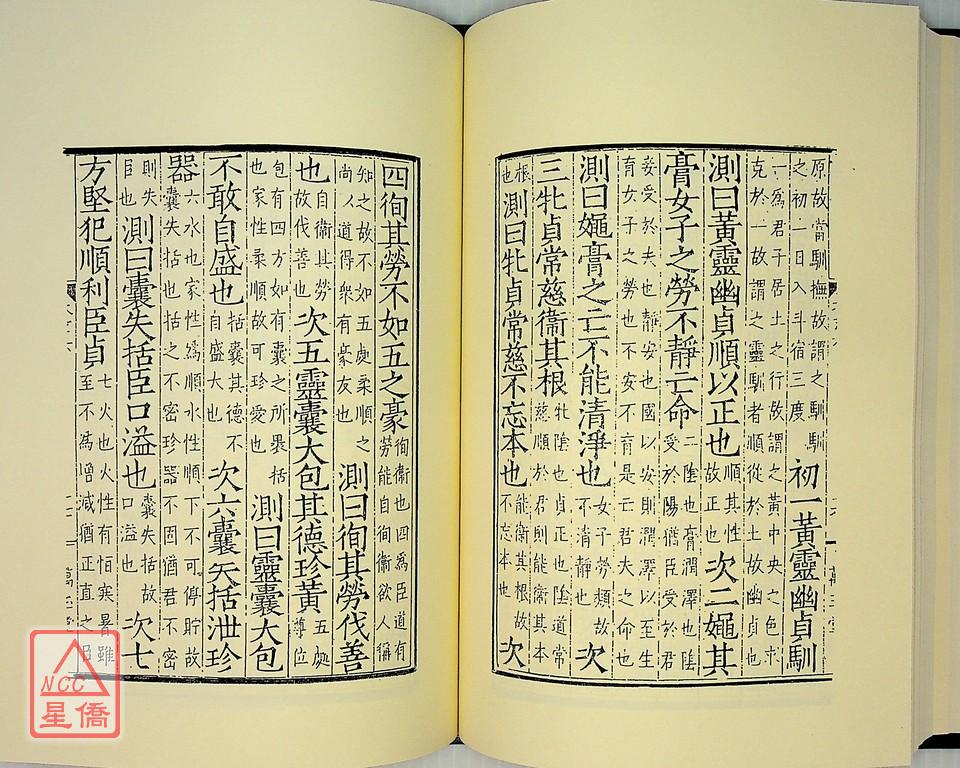 原故當馴撫故謂之馴馴
之初一日入斗宿三度
初一黃靈幽貞馴
一爲君子居土之行故謂之黃中央之色求
克於一故謂之靈馴者順從於土故幽貞也
測曰黃靈幽貞順以正也
順其性
故正也
次二其
膏女子之勞不靜亡命
二陰也膏潤澤也陰
受於陽猶臣受於君
妾受於夫也靜安也國以安則潤澤以至生
育女子之勞也不安不育是亡君夫之命也
測曰膏之亡不能清淨也
女子勞類故
不清靜也
次
三牝貞常慈衞其根
牝陰也貞正也陰道常
慈順於君則能衞其本
根
也
測曰牝貞常慈不忘本也
能衞其根故
不忘本也
次
四徇其勞不如五之豪
徇衞也四爲臣道有
勞能自徇衞欲人稱
知之故不如五處柔順之
尚人道得衆有豪友也
測曰徇其勞伐善
也
自衞其勞
故伐善也
次五靈囊大包其德珍黃
五處
薄位
包有四方如有囊之所畏括
也家性柔順故可珍愛也
測曰靈囊大包
不敢自盛也
括囊其德不
自盛大也
次六囊失括泄珍
器
六水也家性爲順水性順下不可停貯故
囊失括也括之不密珍器不固猶君不密
則失
臣也
測曰囊失括臣口溢也
囊失括故
口溢也
次七
方堅犯順利臣貞
七火也火性有恒寒暑雖
至不爲增減猶正直之臣
NCC
星僑